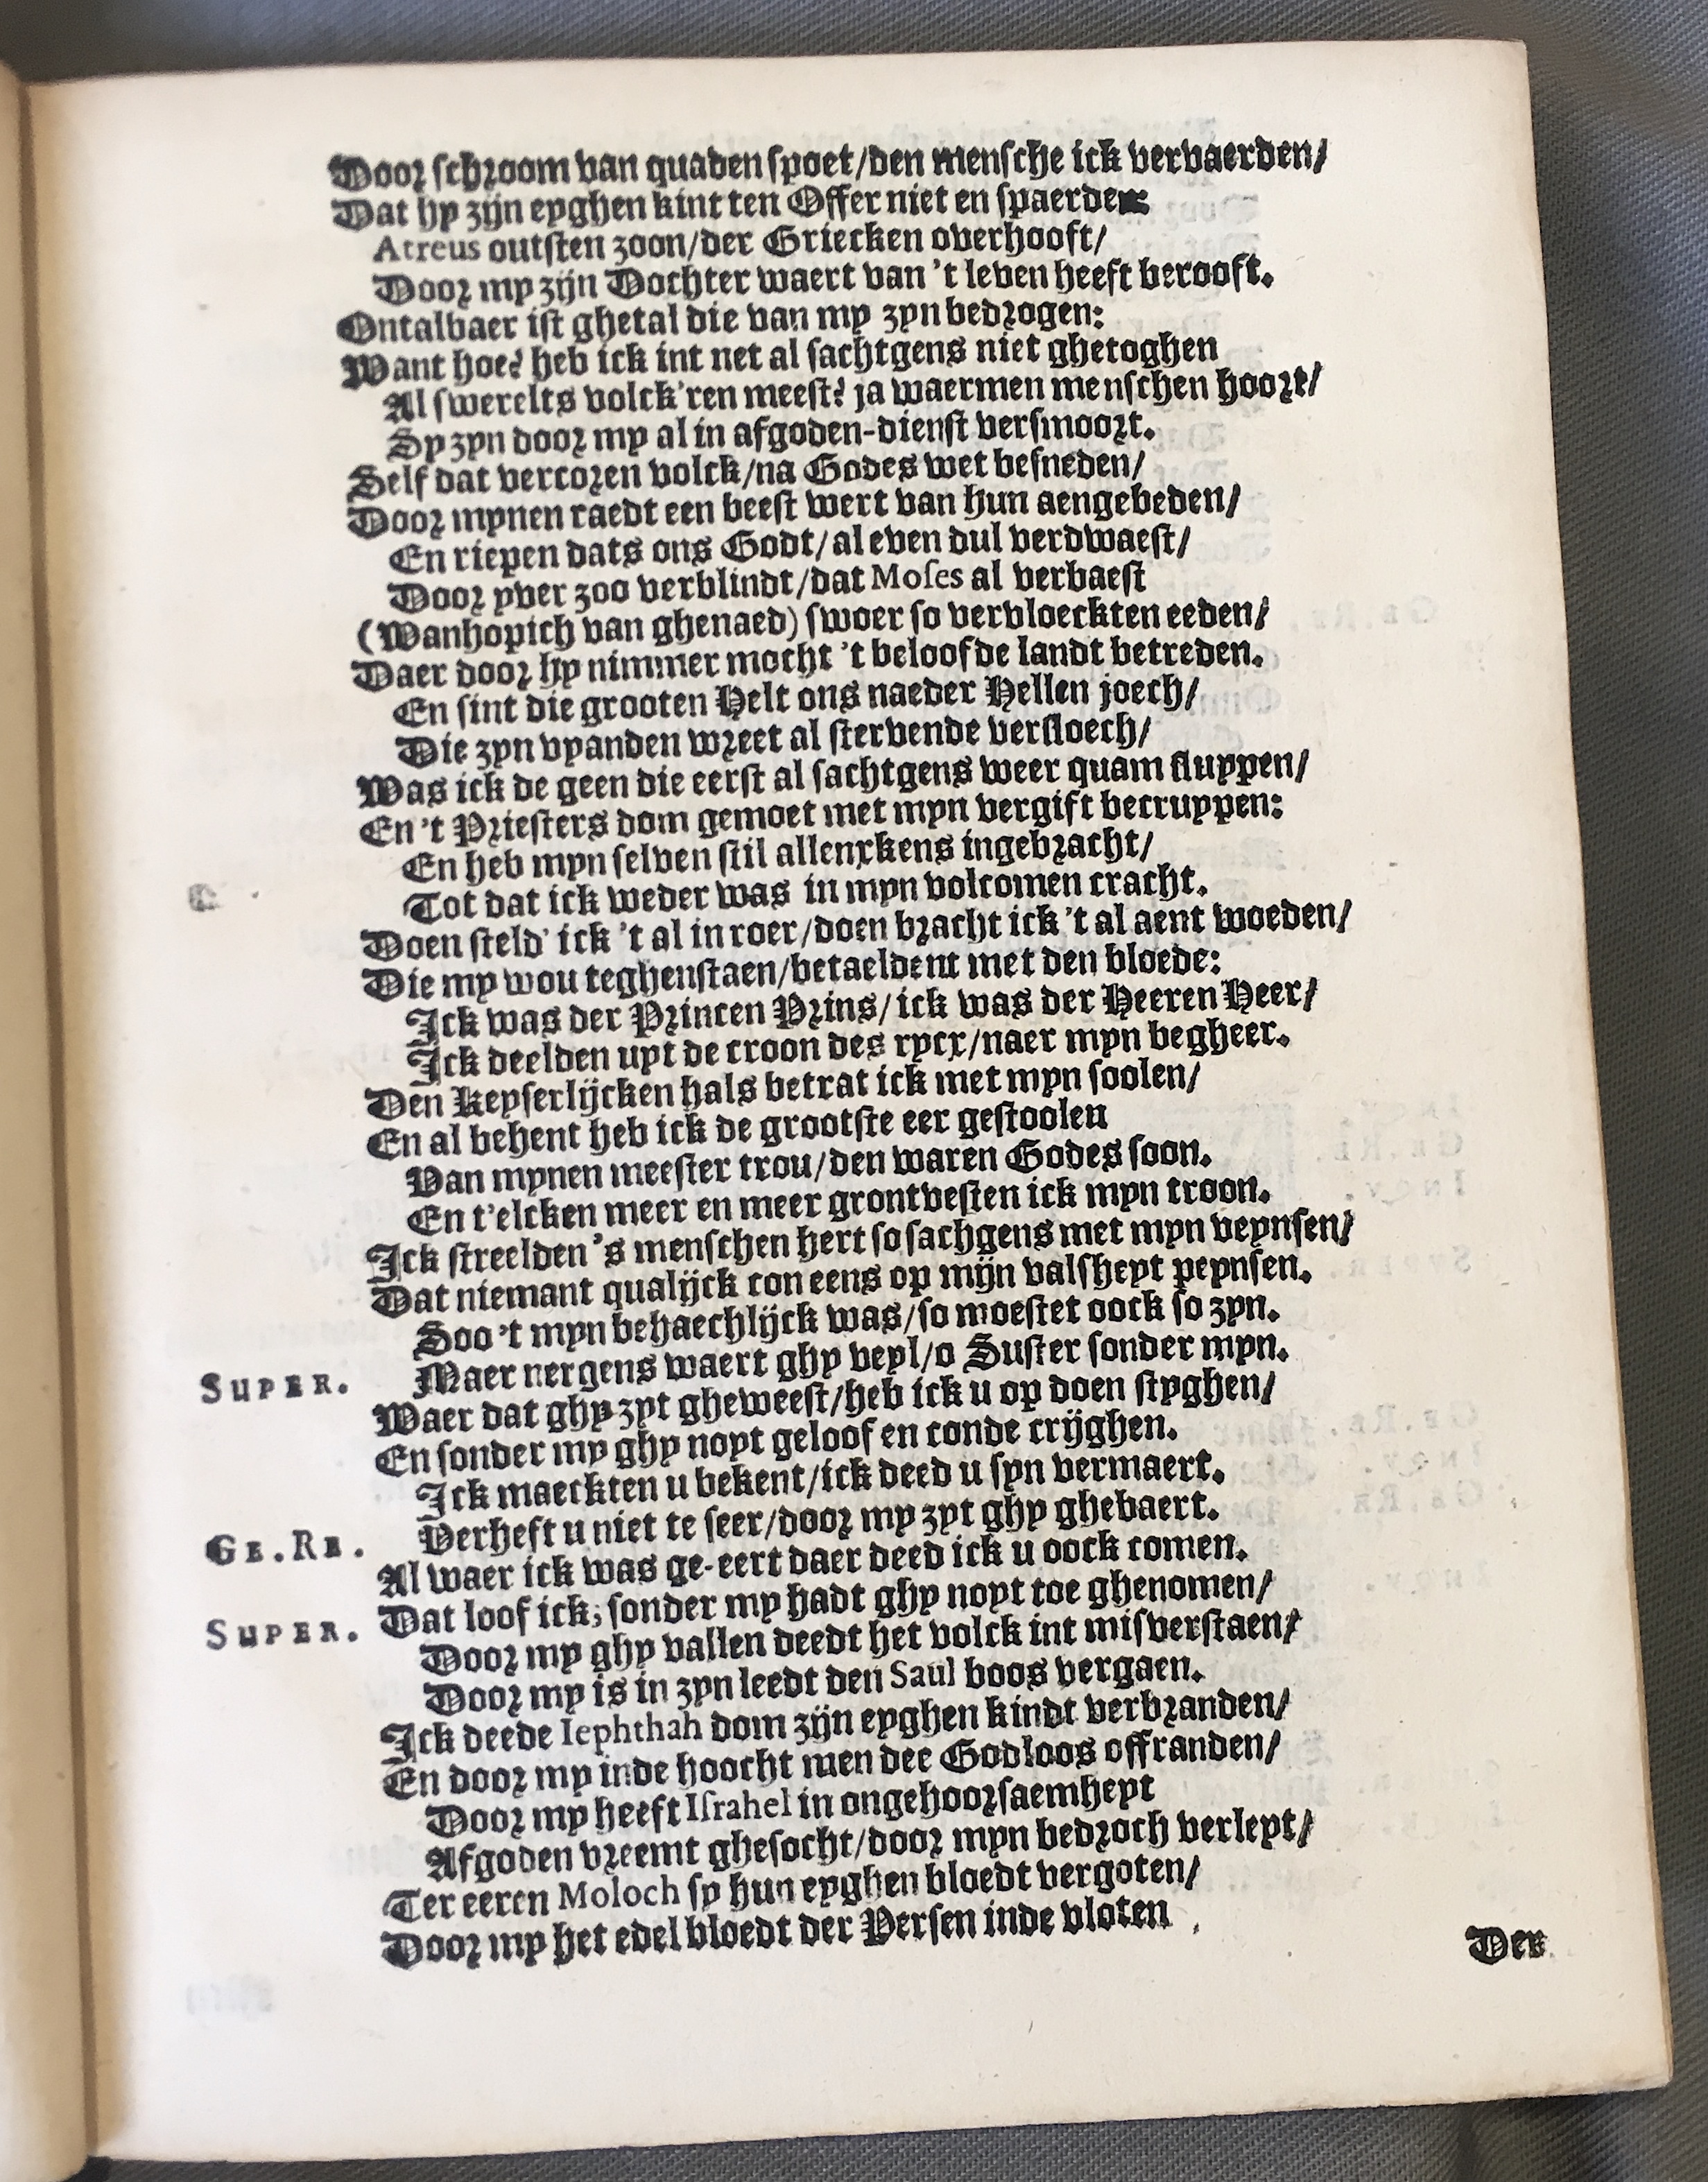 Door schroom van quaden spoet/den mensche ick vervaerden/
Dat hy zijn eyghen kint ten Offer niet en spaerden:
Atreus outsten zoon/der Griecken overhooft/
Door my zijn Dochter waert van 't leven heeft berooft.
Ontalbaer ist ghetal die van my zyn bedrogen:
Want hoe? heb ick int net al sachtgens niet ghetoghen
Al swerelts volck'ren meest? ja waermen menschen hoort/
Sy zyn door my al in afgoden-dienst versmoort.
Self dat vercoren volck/na Godes wet besneden/
Door mynen raedt een beest wert van hun aengebeden/
En riepen dats ons Godt/al even dul verdwaest/
Door yver zoo verblindt/dat Moses al verbaest
(Wanhopich van ghenaed) swoer so vervloeckten eeden/
Daer door hy nimmer mocht 't beloofde landt betreden.
En sint die grooten Helt ons naeder Hellen joech/
Die zyn vyanden wreet al stervende versloech/
Was ick de geen die eerst al sachtgens weer quam sluypen/
En 't Priesters dom gemoet met myn vergift becruypen:
En heb myn selven stil allenxkens ingebracht/
Tot dat ick weder was in myn volcomen cracht.
Doen steld' ick 't al in roer/doen bracht ick 't al aent woeden/
Die my wou teghenstaen/betaeldent met den bloede:
Ick was der Princen Prins/ick was der Heeren Heer/
Ick deelden uyt de croon des rycx/naer myn begheer.
Den Keyserlijcken hals betrat ick met myn soolen/
En al behent heb ick de grootste eer gestoolen
Van mynen meester trou/den waren Godes soon.
En t'elcken meer en meer grontvesten ick myn troon.
Ick streelden 's menschen hert so sachgens met myn veynsen/
Dat niemant qualijck con eens op mijn valsheyt peynsen.
Soo 't myn behaechlijck was/so moestet oock so zyn.
SUPER. Maer nergens waert ghy veyl/o Suster sonder myn.
Waer dat ghy zyt gheweest/heb ick u op doen styghen/
En sonder my ghy noyt geloof en conde crijghen.
Ick maeckten u bekent/ick deed u syn vermaert.
GE.RE. Verheft u niet te seer/door my zyt ghy ghebaert.
Al waer ick was ge-eert daer deed ick u oock comen.
SUPER. Dat loof ick; sonder my hadt ghy noyt toe ghenomen/
Door my ghy vallen deedt het volck int misverstaen/
Door my is in zyn leedt den Saul boos vergaen.
Ick deede Iephthah dom zijn eyghen kindt verbranden/
En door my inde hoocht men dee Godloos offranden/
Door my heeft Israhel in ongehoorsaemheyt
Afgoden vreemt ghesocht/door myn bedroch verleyt/
Ter eeren Moloch sy hun eyghen bloedt vergoten/
Door my het edel bloedt der Persen inde vloten
Der